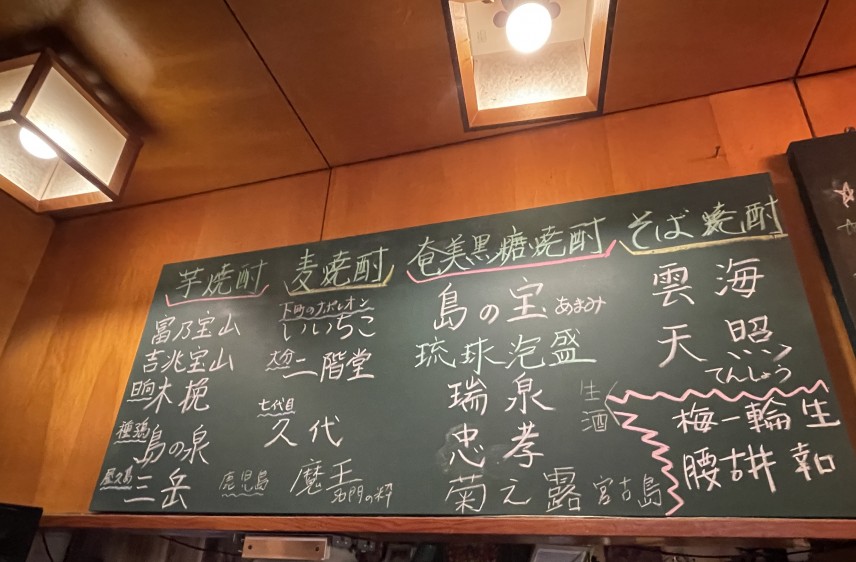 芋焼酎
富乃宝山
吉兆宝山
日向 木挽
種子島 島の泉
屋久島 三岳
麦焼酎
下町のナポレオン
いいちこ
大分 二階堂
七代目
久代
鹿児島 魔王 名門の粋
奄美黒糖焼酎
島の宝 あまみ
琉球泡盛
瑞泉
忠孝
菊之露 宮古島
そば焼酎
雲海
天照
てんしょう
生酒
梅一輪 生
腰古井 和